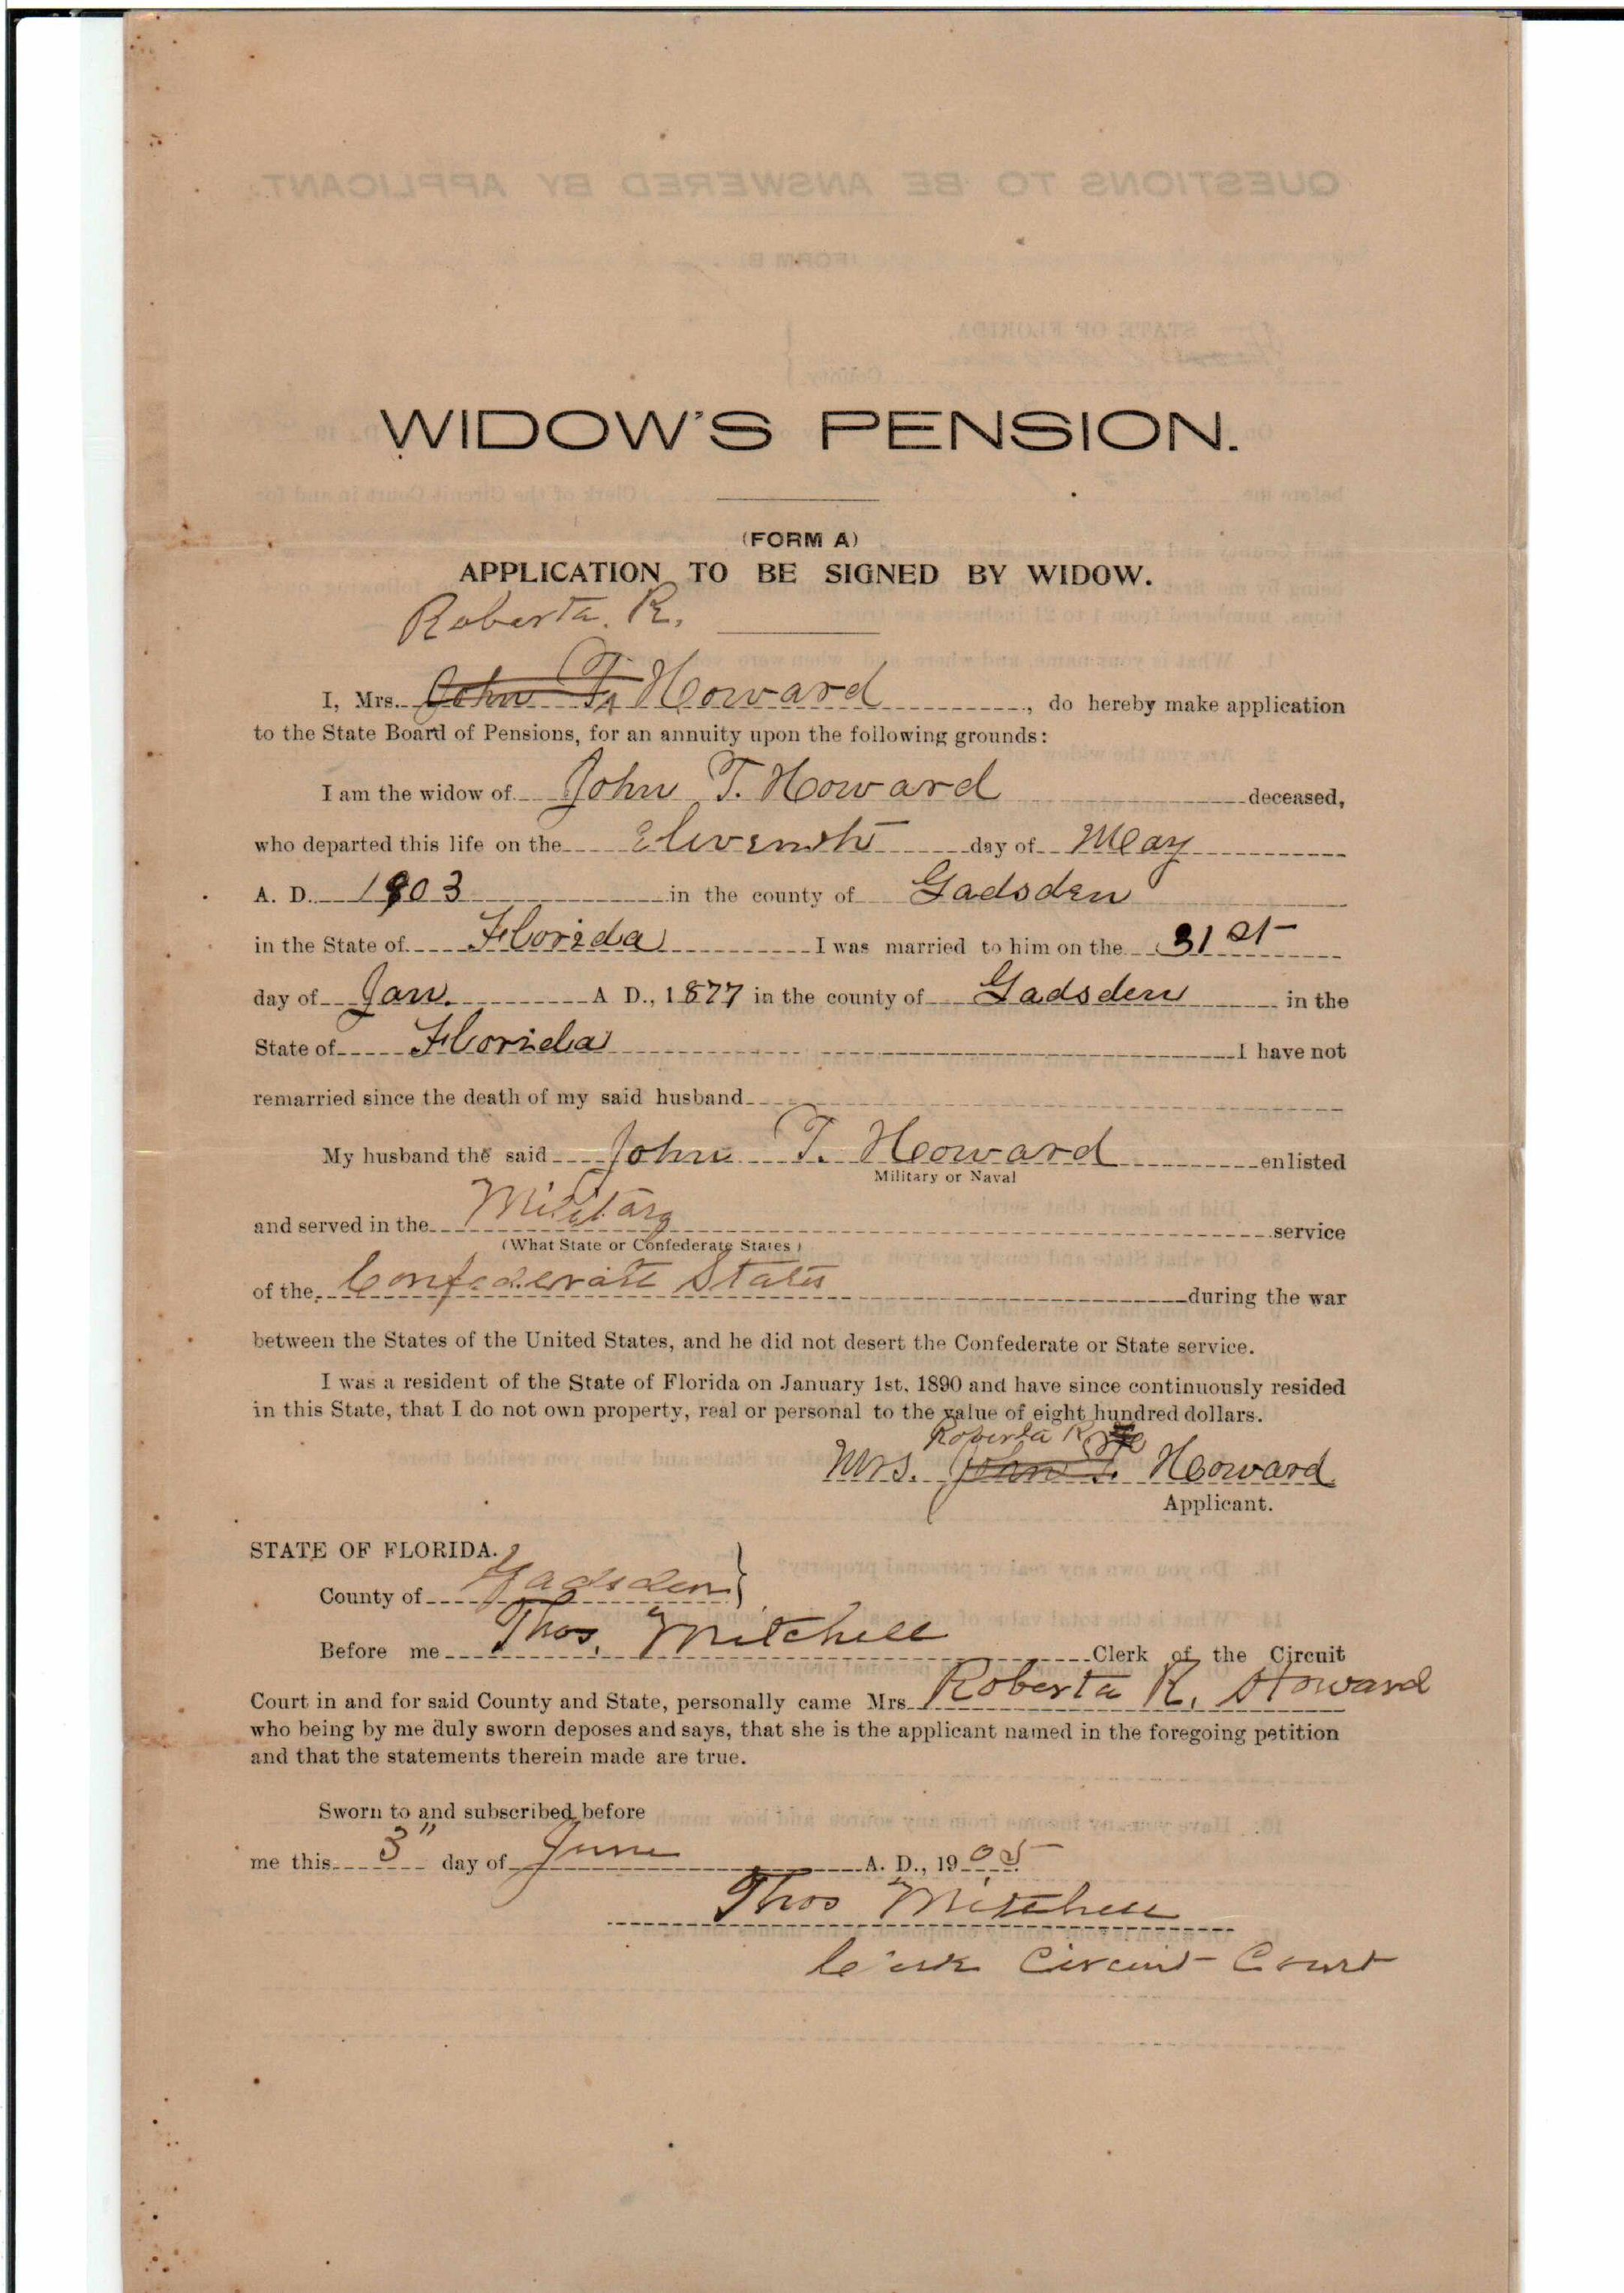 WIDOW'S PENSION.
(FORM A)
APPLICATION TO BE SIGNED BY WIDOW.
Roberta. R.
I, Mrs. John T. Howard, do hereby make application
to the State Board of Pensions, for an annuity upon the following grounds:
I am the widow of John T. Howard deceased,
who departed this life on the Elevenths day of May
A. D. 1903 in the county of Gadsden
in the State of Florida I was married to him on the 31st
day of Jan. A D., 1877 in the county of Gadsden in the
State of Florida I have not
remarried since the death of my said husband
My husband the said John T. Howard enlisted
Military or Naval
and served in the Military service
(What State or Confederate States)
of the Confederate States during the war
between the States of the United States, and he did not desert the Confederate or State service.
I was a resident of the State of Florida on January 1st, 1890 and have since continuously resided
in this State, that I do not own property, real or personal to the value of eight hundred dollars.
Roberta R
Mrs. John T. Howard
Applicant.
STATE OF FLORIDA.
County of Gadsden
Before me Thos. Mitchell Clerk of the Circuit
Court in and for said County and State, personally came Mrs Roberta R. Howard
who being by me duly sworn deposes and says, that she is the applicant named in the foregoing petition
and that the statements therein made are true.
Sworn to and subscribed before
me this 3" day of June A. D., 1905
Thos Mitchell
Clerk Circuit Court